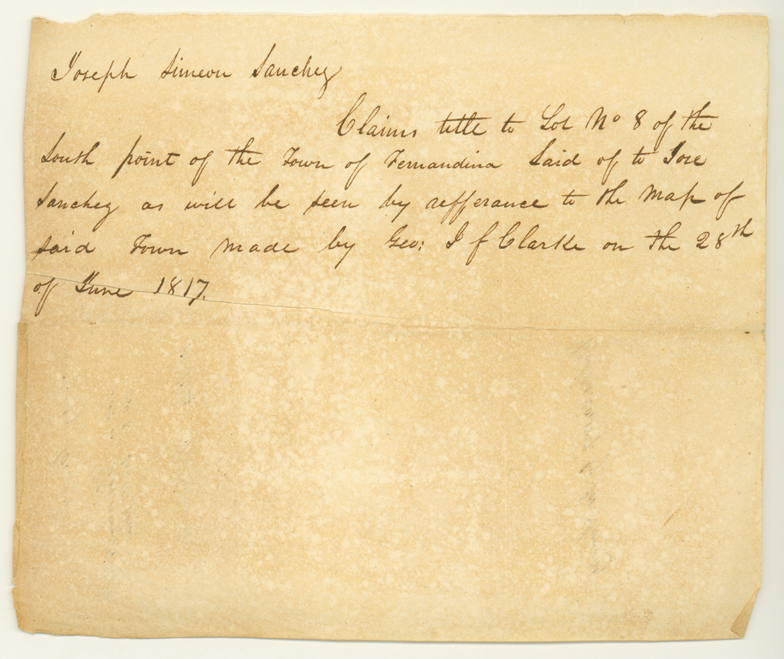 Joseph Simeon Sanchez
Claims title to Lot No 8 of the
South point of the Town of Fernandina Said of to Jose
Sanchez as will be seen by refferance to the Map of
said Town made by Geo: I f Clarke on the 28th
of June 1817.